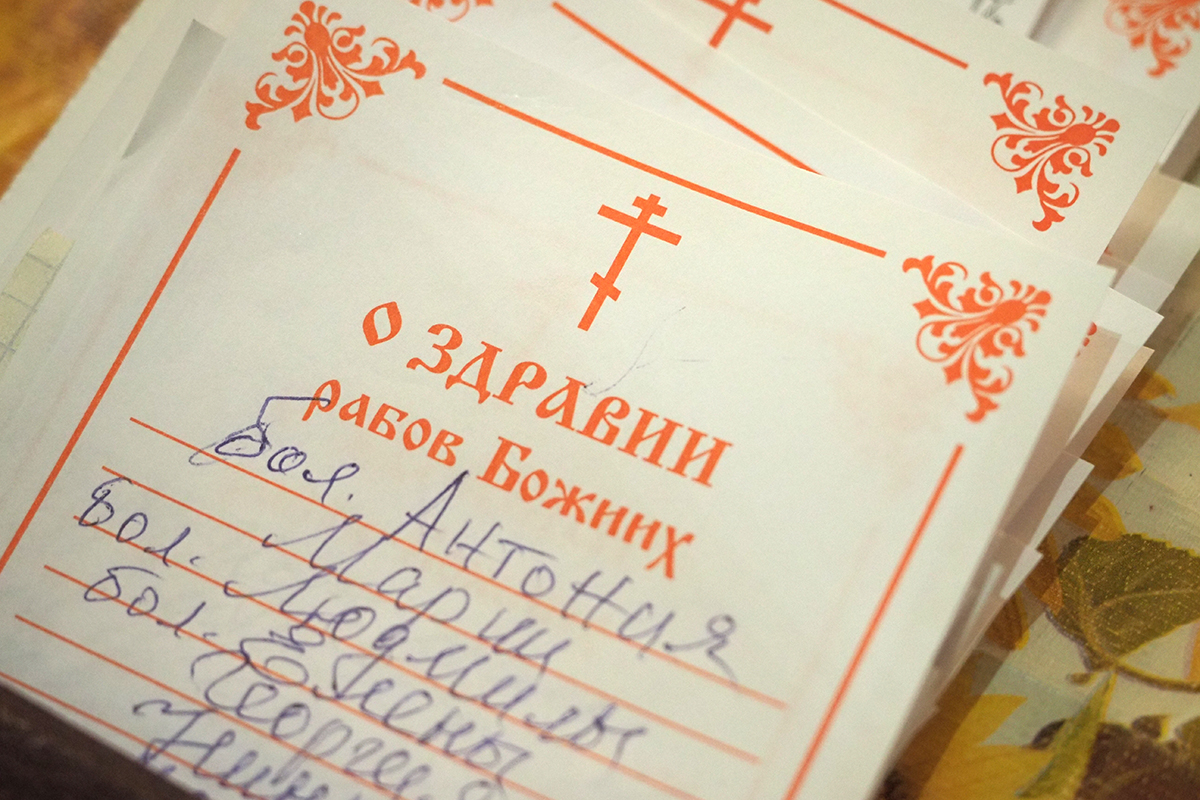 О ЗДРАВИИ
рабов Божиих
бол. Антония
Марии
бол. Людмилы
бол. Елены
Георгия